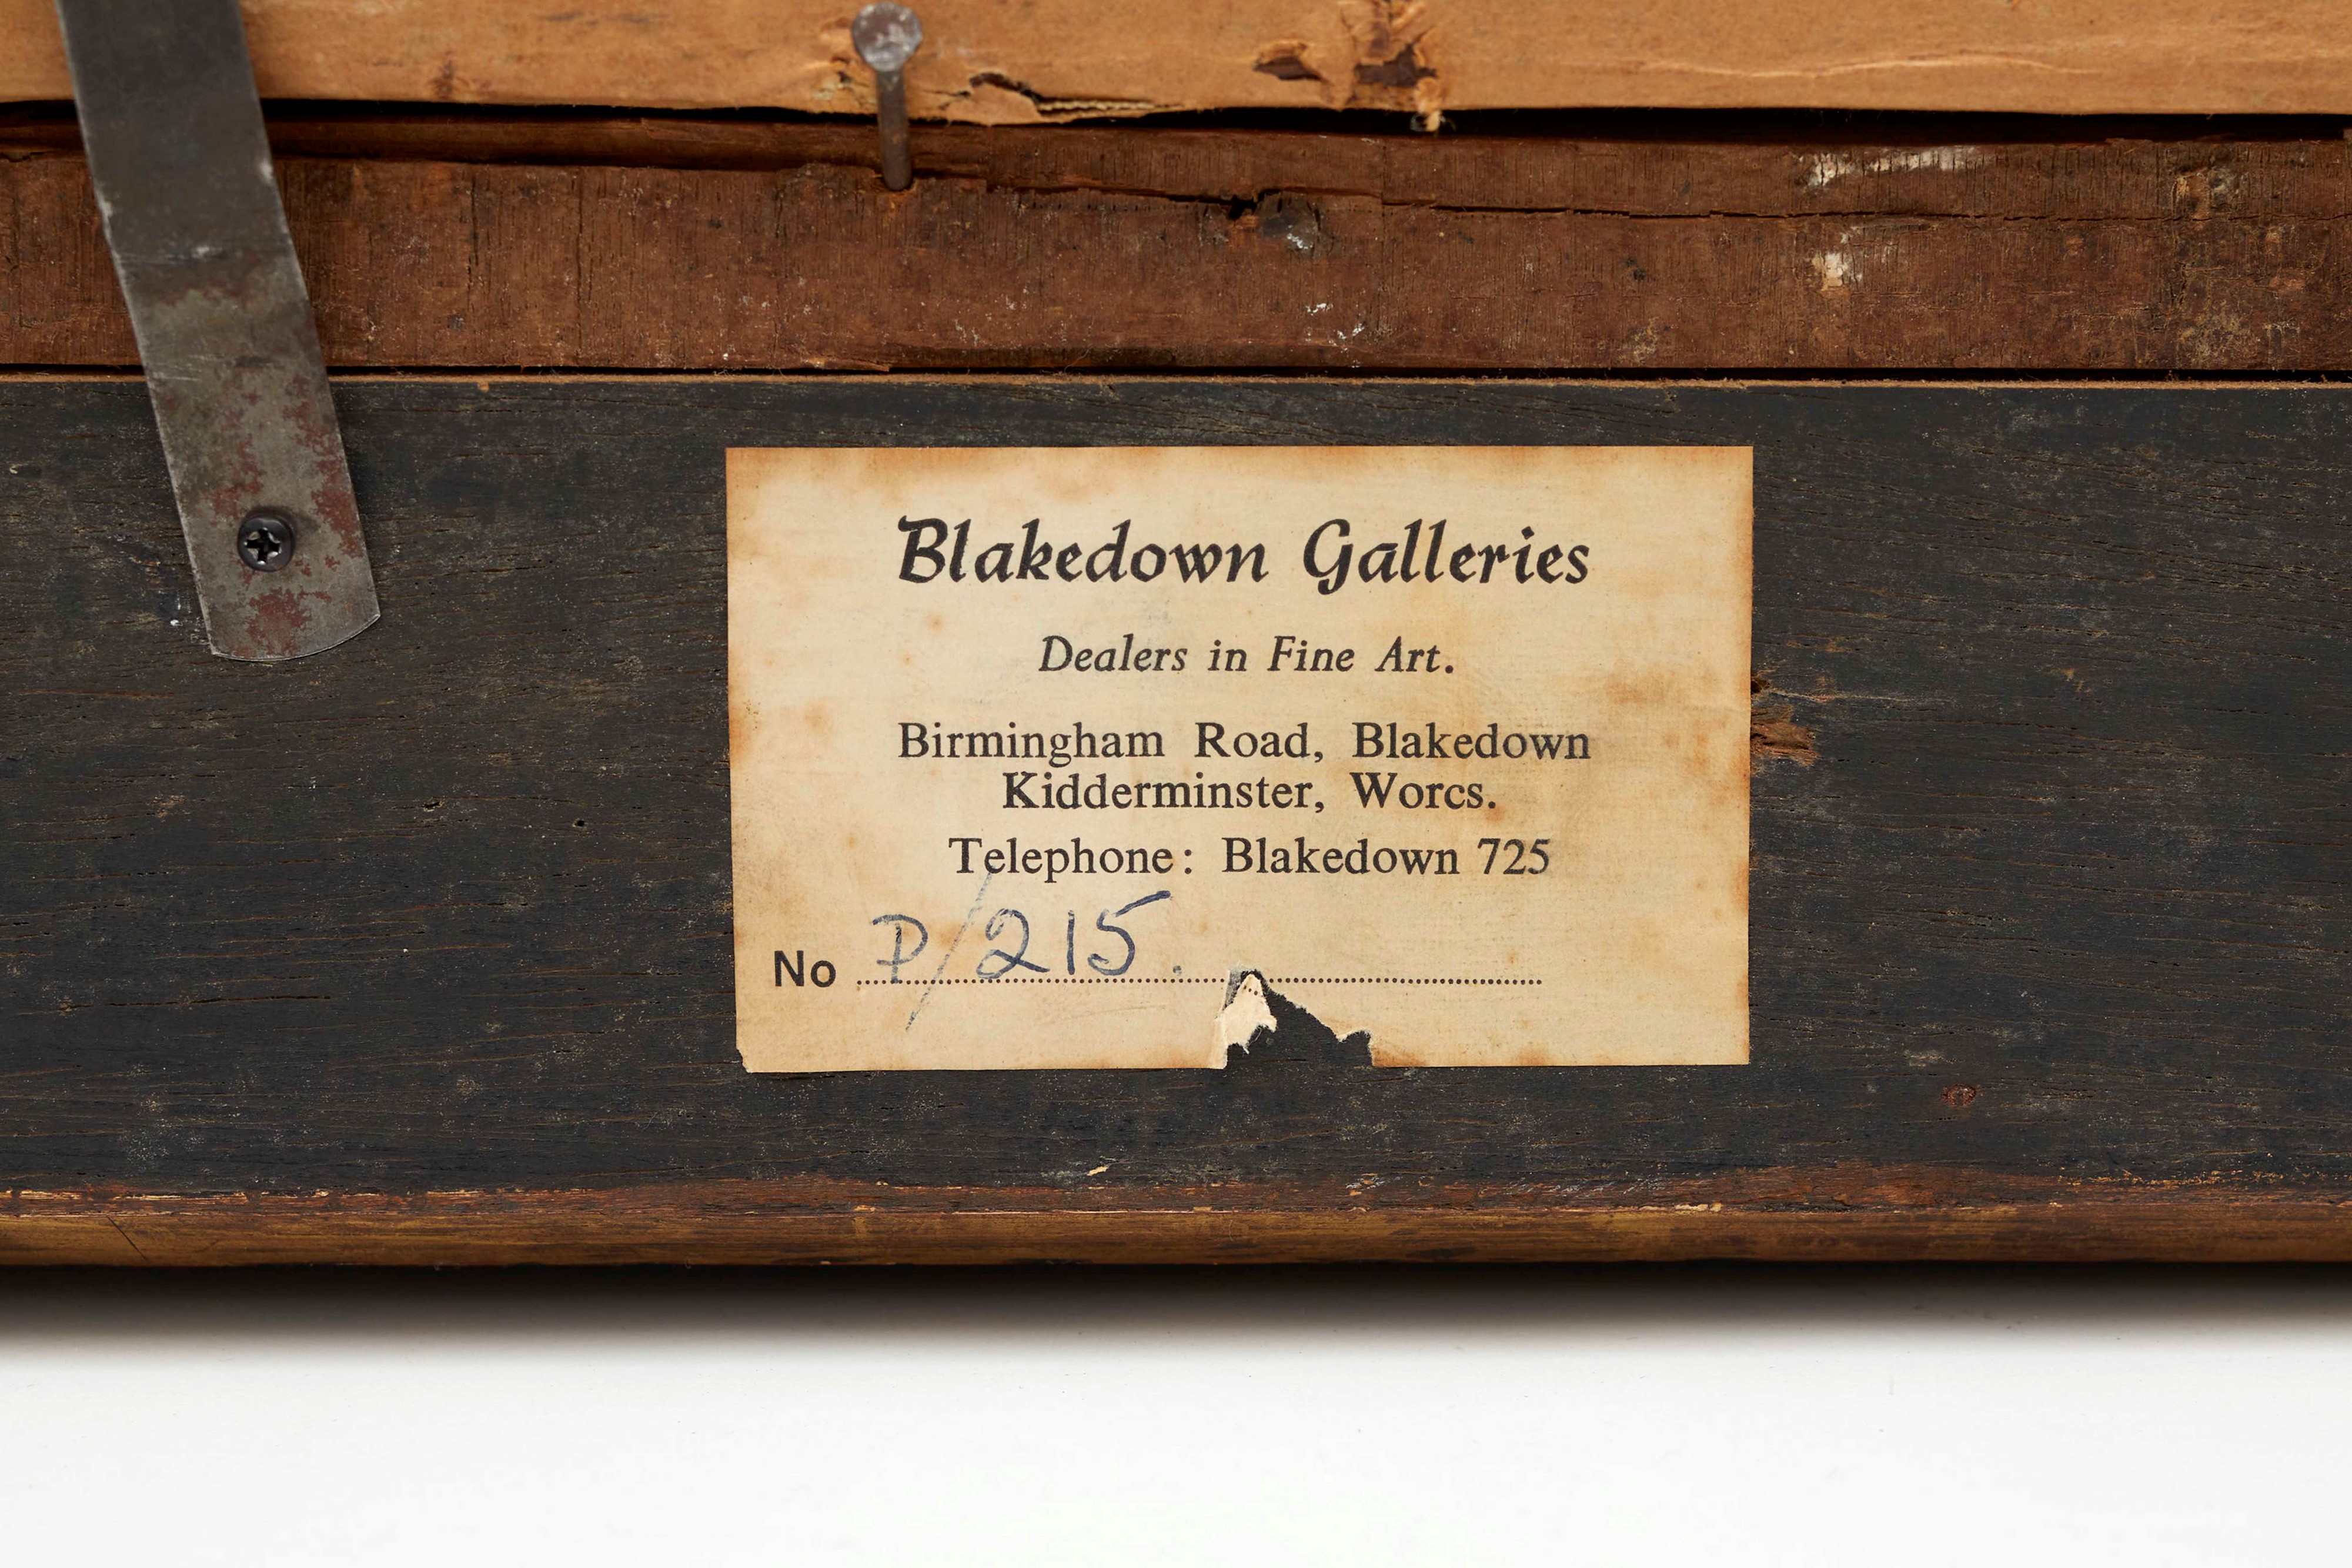 Blakedown Galleries
Dealers in Fine Art.
Birmingham Road, Blakedown
Kidderminster, Worcs.
Telephone: Blakedown 725
No P/215.